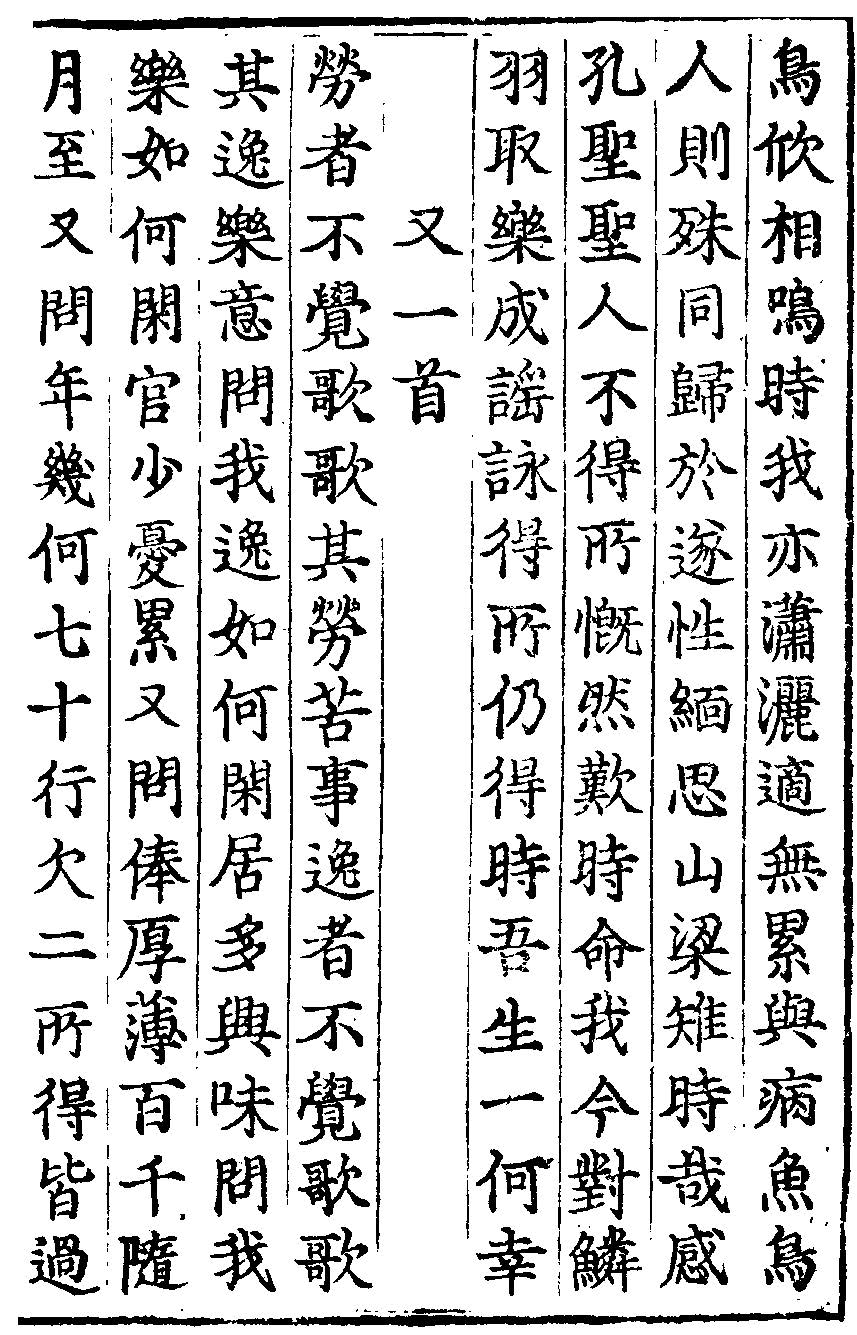 鳥欣相鳴時我亦瀟灑適無累與病魚鳥
人則殊同歸於遂性緬思山梁雉時哉感
孔聖聖人不得所慨然歎時命我今對鱗
羽取樂成謡詠得所仍得時吾生一何幸
又一首
勞者不覺歌歌其勞苦事逸者不覺歌歌
其逸樂意問我逸如何閑居多興味問我
樂如何閑官少憂累又問俸厚薄百千隨
月至又問年幾何七十行欠二所得皆過